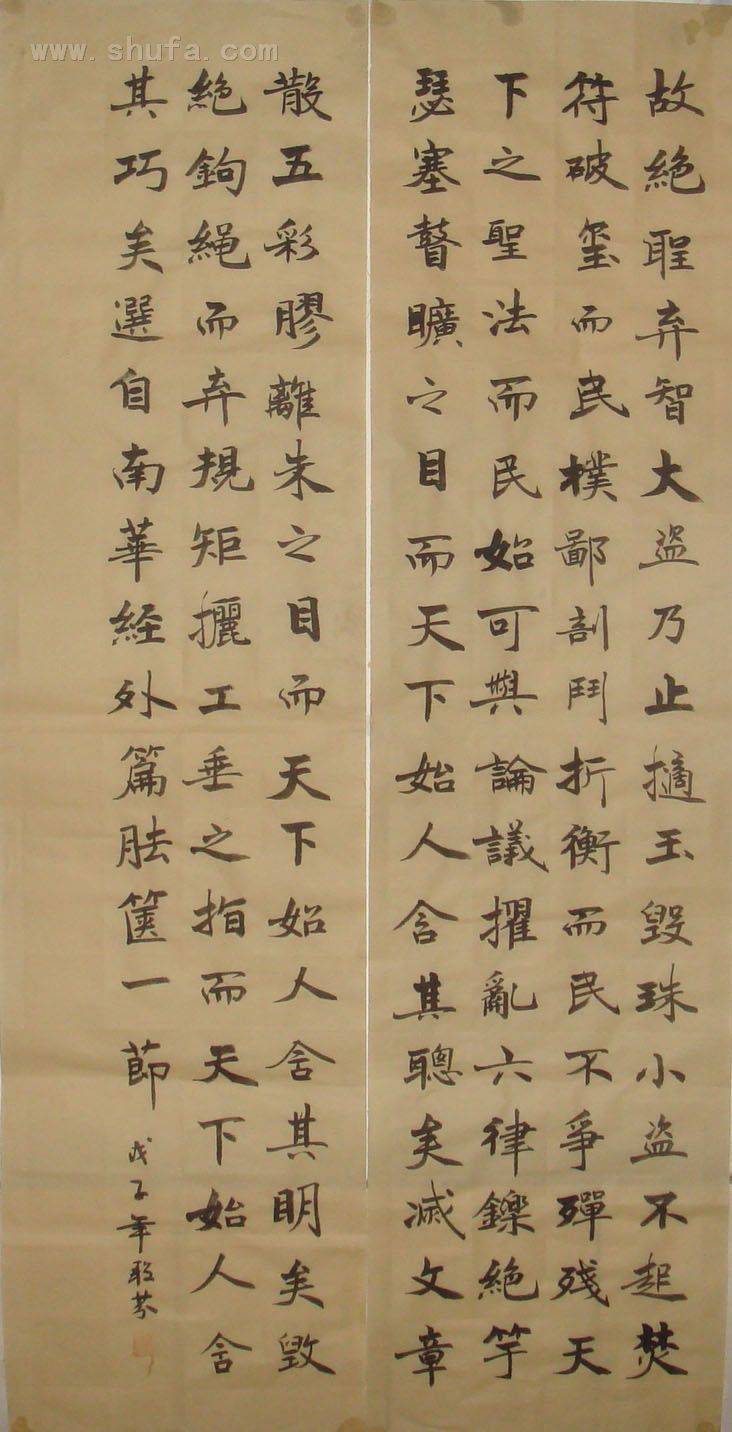 www.shufa.com
故絕聖弃智大盜乃止擿玉毀珠小盜不起焚
符破璽而民樸鄙剖鬥折衡而民不爭殫残天
下之聖法而民始可與論議擢亂六律鑠絕竽
瑟塞瞽曠之目而天下始人含其聰矣滅文章
散五彩膠離朱之目而天下始人含其明矣毀
絕鉤繩而弃規矩攦工垂之指而天下始人含
其巧矣選自南華経外篇胠篋一節
戊子年